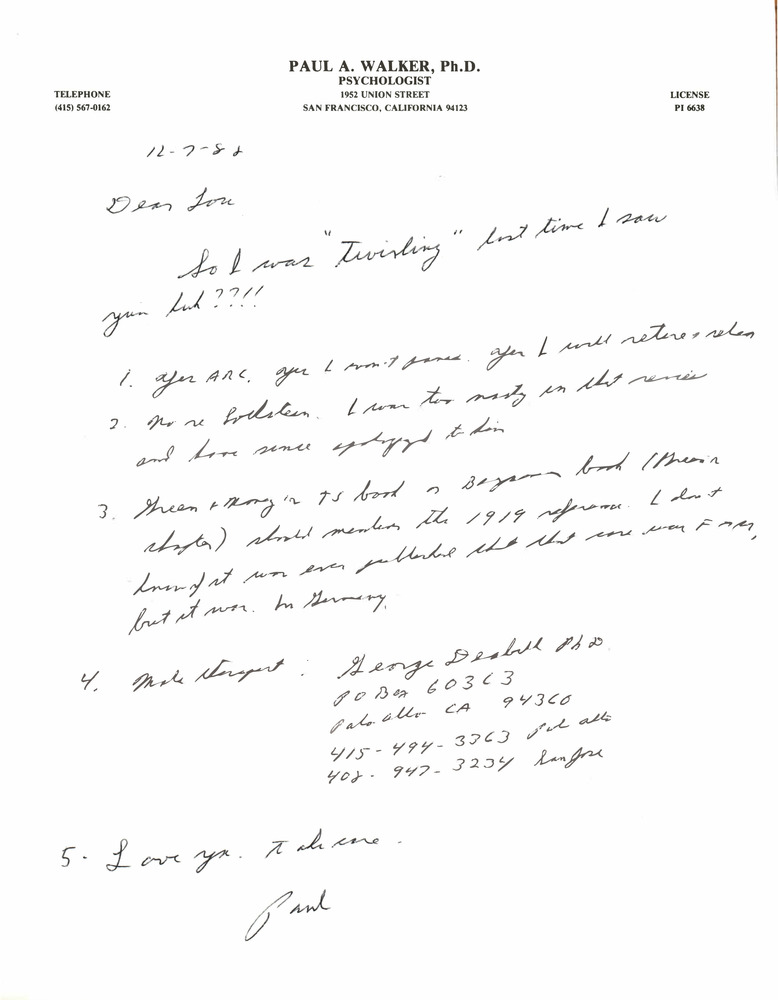 PAUL A. WALKER, Ph.D.
PSYCHOLOGIST
TELEPHONE 1952 UNION STREET LICENSE
(415) 567-0162 SAN FRANCISCO, CALIFORNIA 94123 PI 6638
12-7-88
Dear Lou
So I was "Twirling" last time I saw
you huh??!!
1. Yes ARC. Yes I won't Yes I will
2. No re I was too nasty in that review
and have since to him
3. Green & Money in TS book or book (
chapter) should mention the 1919 reference. I don't
know if it was ever published that that case was F
but it was. In Germany.
4. Male therapist: George PhD
PO Box
Palo Alto CA
415-494- Palo Alto
408-947-3234 San Jose
5. Love ya. Take care.
Paul